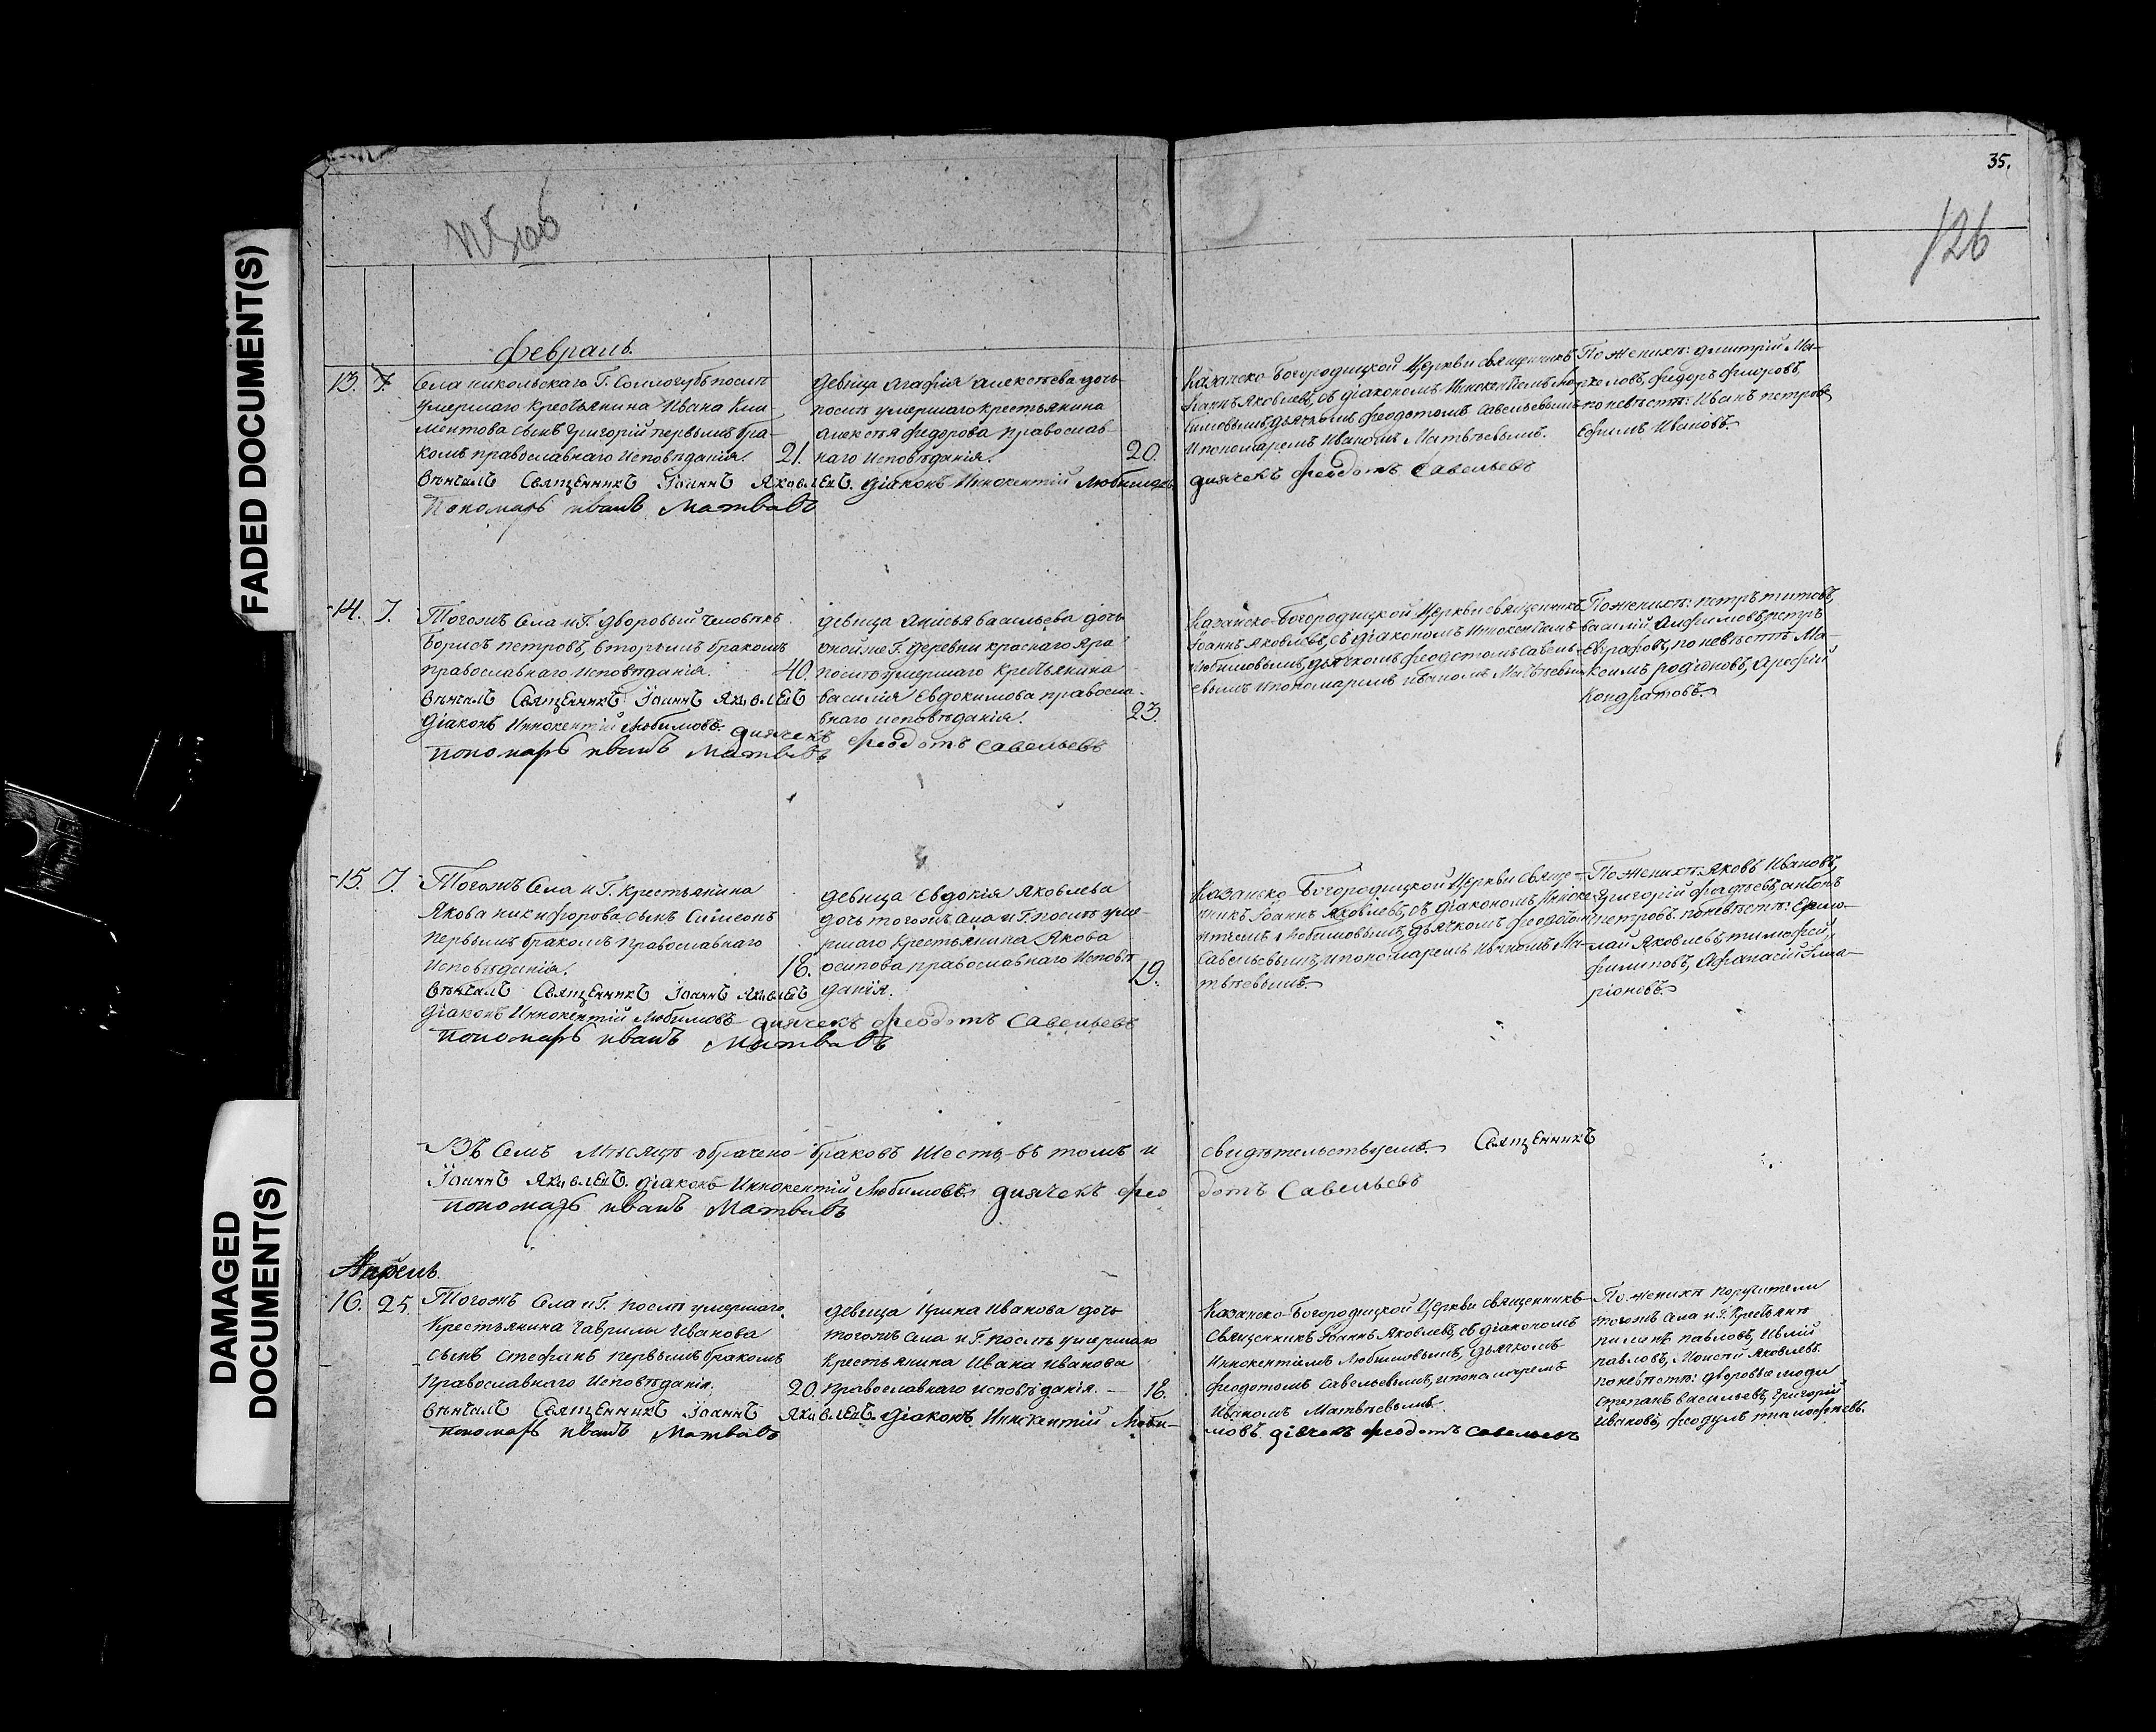 35.
126
FADED DOCUMENT(S)
DAMAGED
DOCUMENT(S)
Февраль.
13. 7.
Села никольскаго Г. Соллогубъ послѣ
умершаго крестьянина Ивана Кли-
ментова сынъ Григорій первымъ бра-
комъ православнаго исповѣданія. 21.
девица Агафія Алексѣева дочь
послѣ умершаго крестьянина
Алексѣя Федорова православ-
наго исповѣданія. 20.
Вѣнчалъ Священникъ Іоаннъ Яковлевъ. Діаконъ Иннокентій Любимовъ
Пономарь иванъ Матвѣвъ
Казанско-Богородицкой Церкви священникъ
Іоаннъ Яковлевъ, съ діакономъ Иннокентіемъ Лю-
бимовымъ, дьячкомъ Феодотомъ Савельевымъ
и пономаремъ Иваномъ Матвѣевымъ.
дьячекъ Феодотъ Савельевъ
По женихѣ: Дмитрій Ма-
ркеловъ, Федоръ
по невѣстѣ: Иванъ Петровъ
Ефимъ Ивановъ.
14. 7.
Тогожъ Села и Г. дворовый человѣкъ
Борисъ Петровъ, вторымъ бракомъ
православнаго исповѣданія. 40.
девица Анисья васильева дочь
оной же Г. деревни краснаго Яра
послѣ умершаго крестьянина
василія Евдокимова правосла-
внаго исповѣданія. 23.
Вѣнчалъ Священникъ Іоаннъ Яковлевъ
Діаконъ Иннокентій Любимовъ. дьячекъ Феодотъ Савельевъ
пономарь иванъ Матвѣвъ
Казанско-Богородицкой Церкви священникъ
Іоаннъ Яковлевъ, съ діакономъ Иннокентіемъ
Любимовымъ, дьячкомъ Феодотомъ Савель-
евымъ и пономаремъ Иваномъ Матвѣевымъ
По женихѣ: Петръ Титовъ,
василій Анфимовъ, петръ
Евграфовъ, по невѣстѣ Ма-
ксимъ родіоновъ, Арефій
Кондратовъ.
15. 7.
Тогожъ Села и Г. Крестьянина
Якова никифорова сынъ Симеонъ
первымъ бракомъ православнаго
исповѣданія. 18.
девица Евдокія Яковлева
дочь тогожъ села и Г. послѣ уме-
ршаго крестьянина Якова
осипова православнаго исповѣ
данія. 19.
Вѣнчалъ Священникъ Іоаннъ Яковлевъ
Діаконъ Иннокентій Любимовъ дьячекъ Феодотъ Савельевъ
пономарь иванъ Матвѣвъ
Казанско-Богородицкой Церкви свяще-
нникъ Іоаннъ Яковлевъ, съ діакономъ Инноке-
нтіемъ Любимовымъ, дьячкомъ Феодотомъ
Савельевымъ, и пономаремъ Иваномъ Ма-
твѣевымъ.
По женихѣ: Яковъ Ивановъ,
Григорій антонъ
петровъ. по невѣстѣ: Ермо-
лай Яковлевъ, тимофей
филиповъ, Афанасій Ила-
ріоновъ.
Въ Семъ Мѣсяцѣ обрачено браковъ шесть, въ томъ и свидѣтельствуемъ. Священникъ
Іоаннъ Яковлевъ. діаконъ Иннокентій Любимовъ. дьячекъ Феодотъ Савельевъ
пономарь иванъ Матвѣвъ
Апрель.
16. 25.
Тогожъ Села и Г. послѣ умершаго
Крестьянина Гаврилы Иванова
сынъ Стефанъ первымъ бракомъ
православнаго исповѣданія. 20.
девица Ирина Иванова дочь
тогожъ села и Г. послѣ умершаго
Крестьянина Ивана Иванова
православнаго исповѣданія. 18.
Вѣнчалъ Священникъ Іоаннъ Яковлевъ. Діаконъ Иннокентій Люби-
мовъ. дьячекъ Феодотъ Савельевъ
пономарь иванъ Матвѣвъ
Казанско-Богородицкой Церкви священникъ
священникъ Іоаннъ Яковлевъ, съ діакономъ
Иннокентіемъ Любимовымъ, дьячкомъ
Феодотомъ Савельевымъ, и пономаремъ
Иваномъ Матвѣевымъ.
По женихѣ поручители
тогожъ села и Г. Крестьяне
павловъ,
павловъ, Моисей Яковлевъ
по невѣстѣ: дворовые люди
Степанъ васильевъ, Григорій
Ивановъ, Феодулъ тимофеевъ.